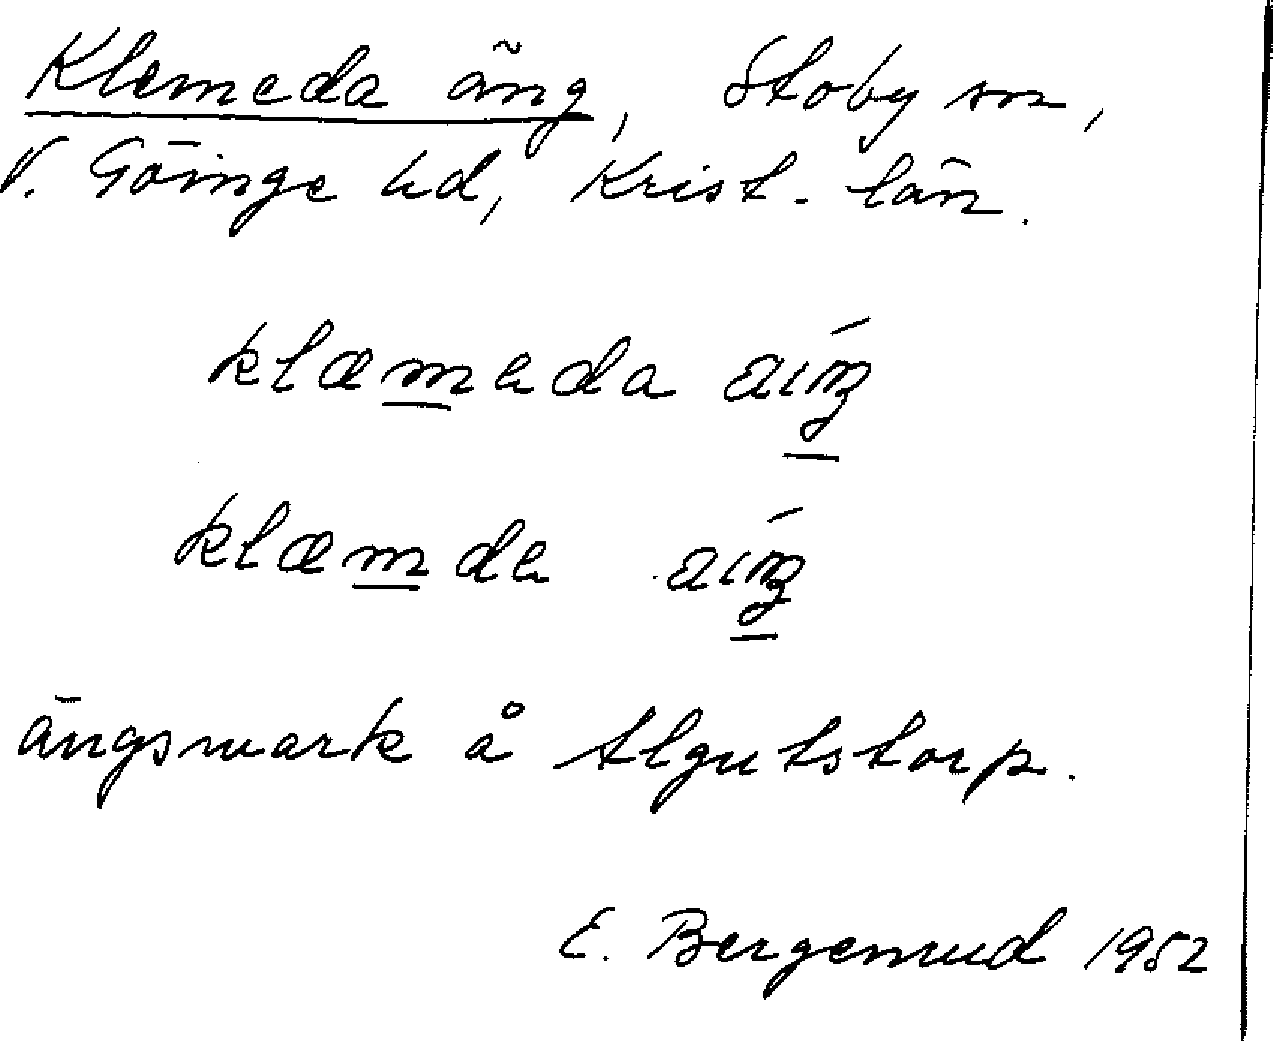 Klemeda äng, Stoby sn,
V. Göinge hd, Krist. län.
klæmada áıŋ
klæmda áıŋ
ängsmark å Algutstorp.
E. Bergenrud 1952